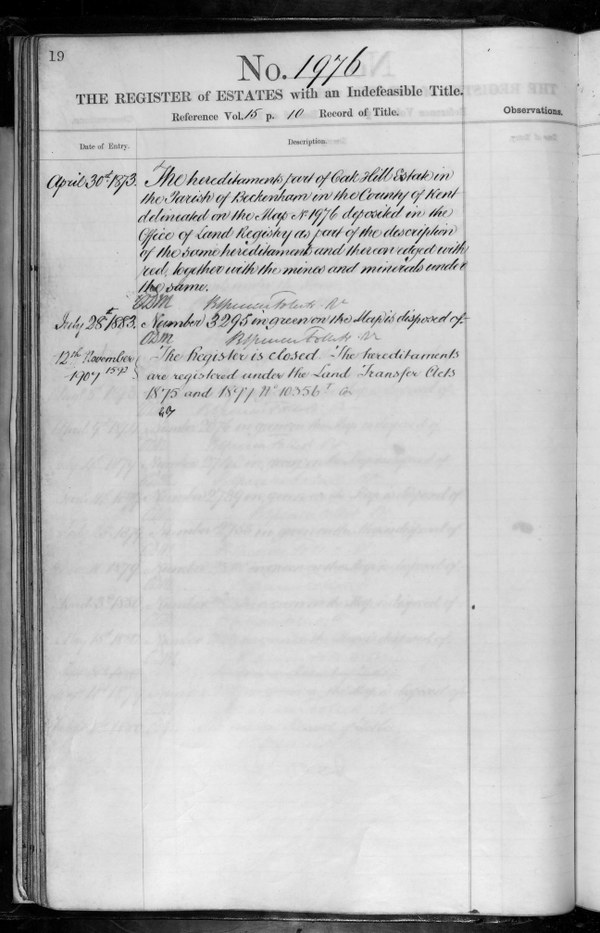 19
No. 1976
THE REGISTER of ESTATES with an Indefeasible Title.
Reference Vol. 15 p. 10 Record of Title.
Observations.
Date of Entry.
Description.
April 30th 1873. The hereditaments part of Oak Hill Estate in
the Parish of Beckenham in the County of Kent
delineated on the Map No 1976 deposited in the
Office of Land Registry as part of the description
of the same hereditaments and thereon edged with
red, together with the mines and minerals under
the same.
July 28th 1883. Number 3295 in green on the Map is disposed of.
12th November The Register is closed. The hereditaments
1907 are registered under the Land Transfer Acts
1875 and 1897 No 10356